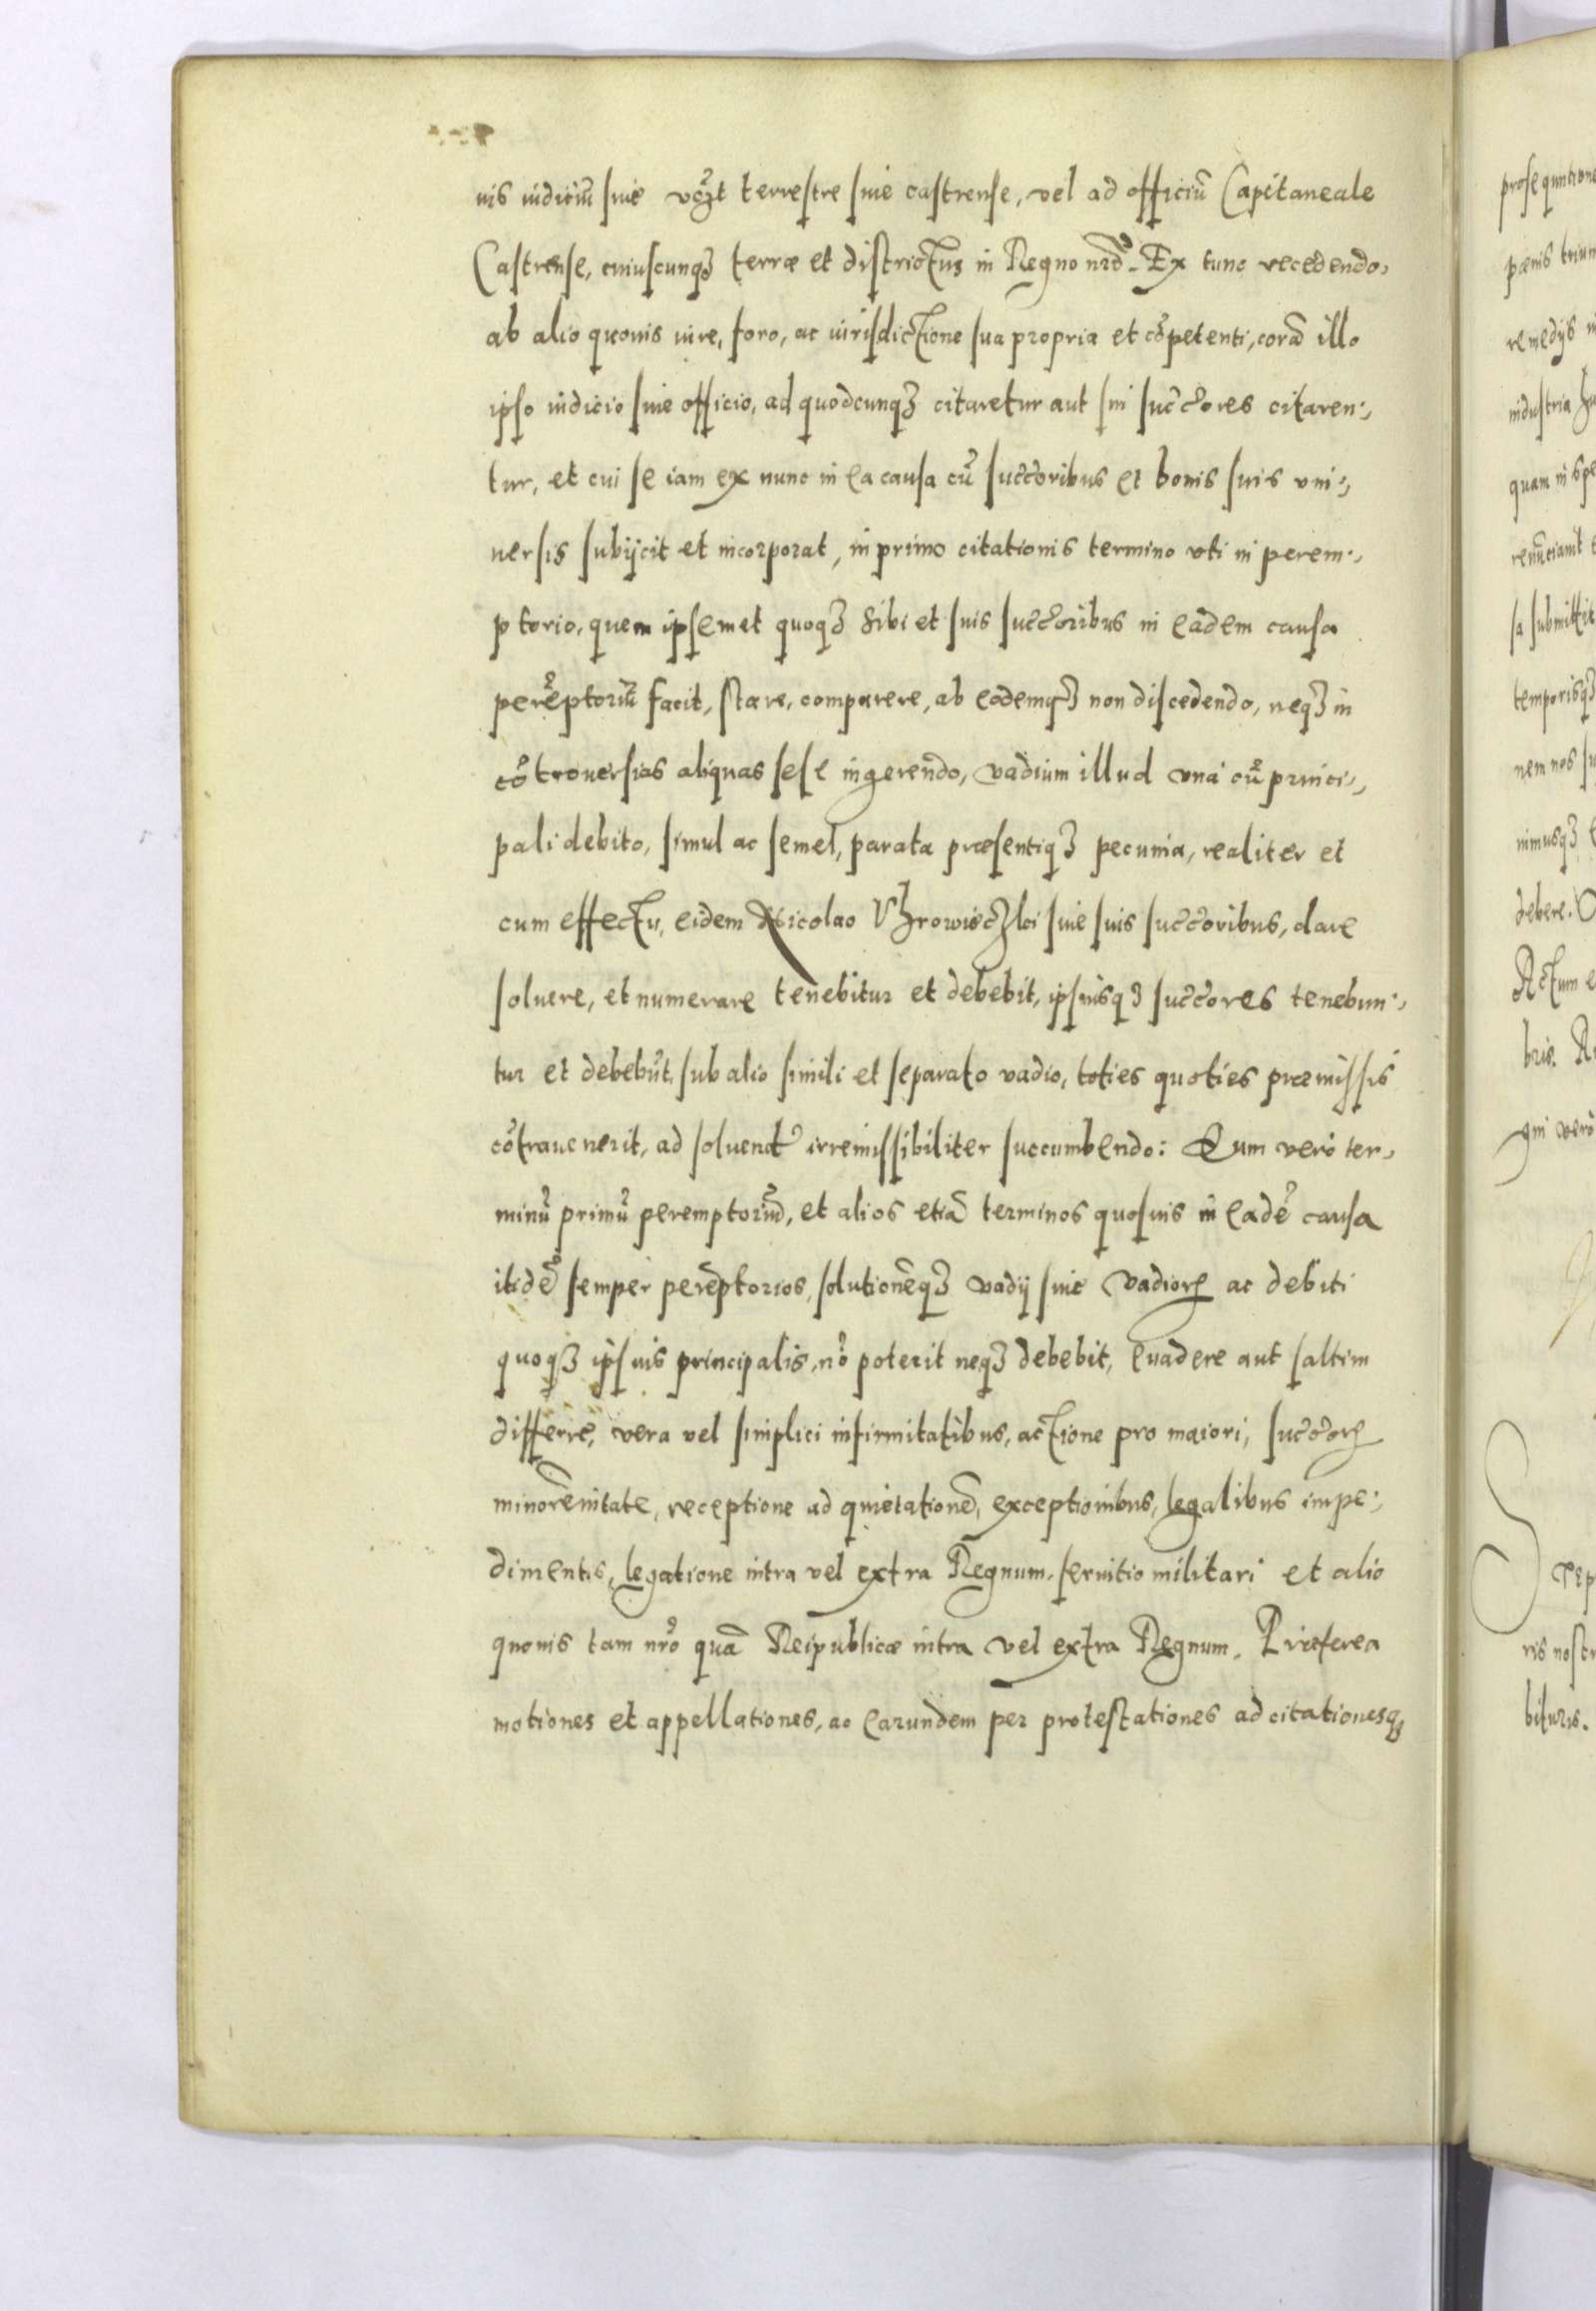 uis iudiciũ siue vẽgt terrestre siue castrense, vel ad officiũ Capitaneale
Castrense, cuiuscunqȝ terræ et districtus in Regno nrõ. Ex tunc recedendo,
ab alio quouis iure, foro, ac iurisdictione sua propria et cõpetenti, corã illo
ipso iudicio siue officio, ad quodcunqȝ citaretur aut sui succ̃ores citaren:,
tur, et cui se iam ex nunc in ea causa cũ succ̃oribus et bonis suis vni:,
uersis subijcit et incorporat, in primo citationis termino vti in perem:,
ptorio, quem ipsemet quoqȝ sibi et suis succ̃oribus in eadem causa
perẽptoriũ facit, stare, comparere, ab eodemqȝ non discedendo, neqȝ in
cõtrouersias aliquas sese ingerendo, vadium illud vna cũ princi:,
pali debito, simul ac semel, parata præsentiqȝ pecunia, realiter et
cum effectu, eidem Nicolao siue suis succ̃oribus, dare
soluere, et numerare tenebitur et debebit, ipsiusqȝ succ̃ores tenebun:,
tur et debebũt, sub alio simili et separato vadio, toties quoties præmissis
cõtrauenerit, ad soluend̃ irremissibiliter succumbendo: Quem verò ter,
minũ primũ peremptoriũ, et alios etiã terminos quosuis in eadẽ causa
itidẽ semper perẽptorios, solutionẽqȝ vadij siue vadiorꝝ ac debiti
quoqȝ ipsius principalis, nõ poterit neqȝ debebit, euadere aut saltim
differre, vera vel simplici infirmitatibus, actione pro maiori, succ̃orꝝ
minorẽnitate, receptione ad quietationẽ, exceptionibus, legalibus impe:,
dimentis, legatione intra vel extra Regnum, seruitio militari et alio
quouis tam nrõ quã Reipublicæ intra vel extra Regnum. Præterea
motiones et appellationes, ac earundem per protestationes ad citationesqȝ